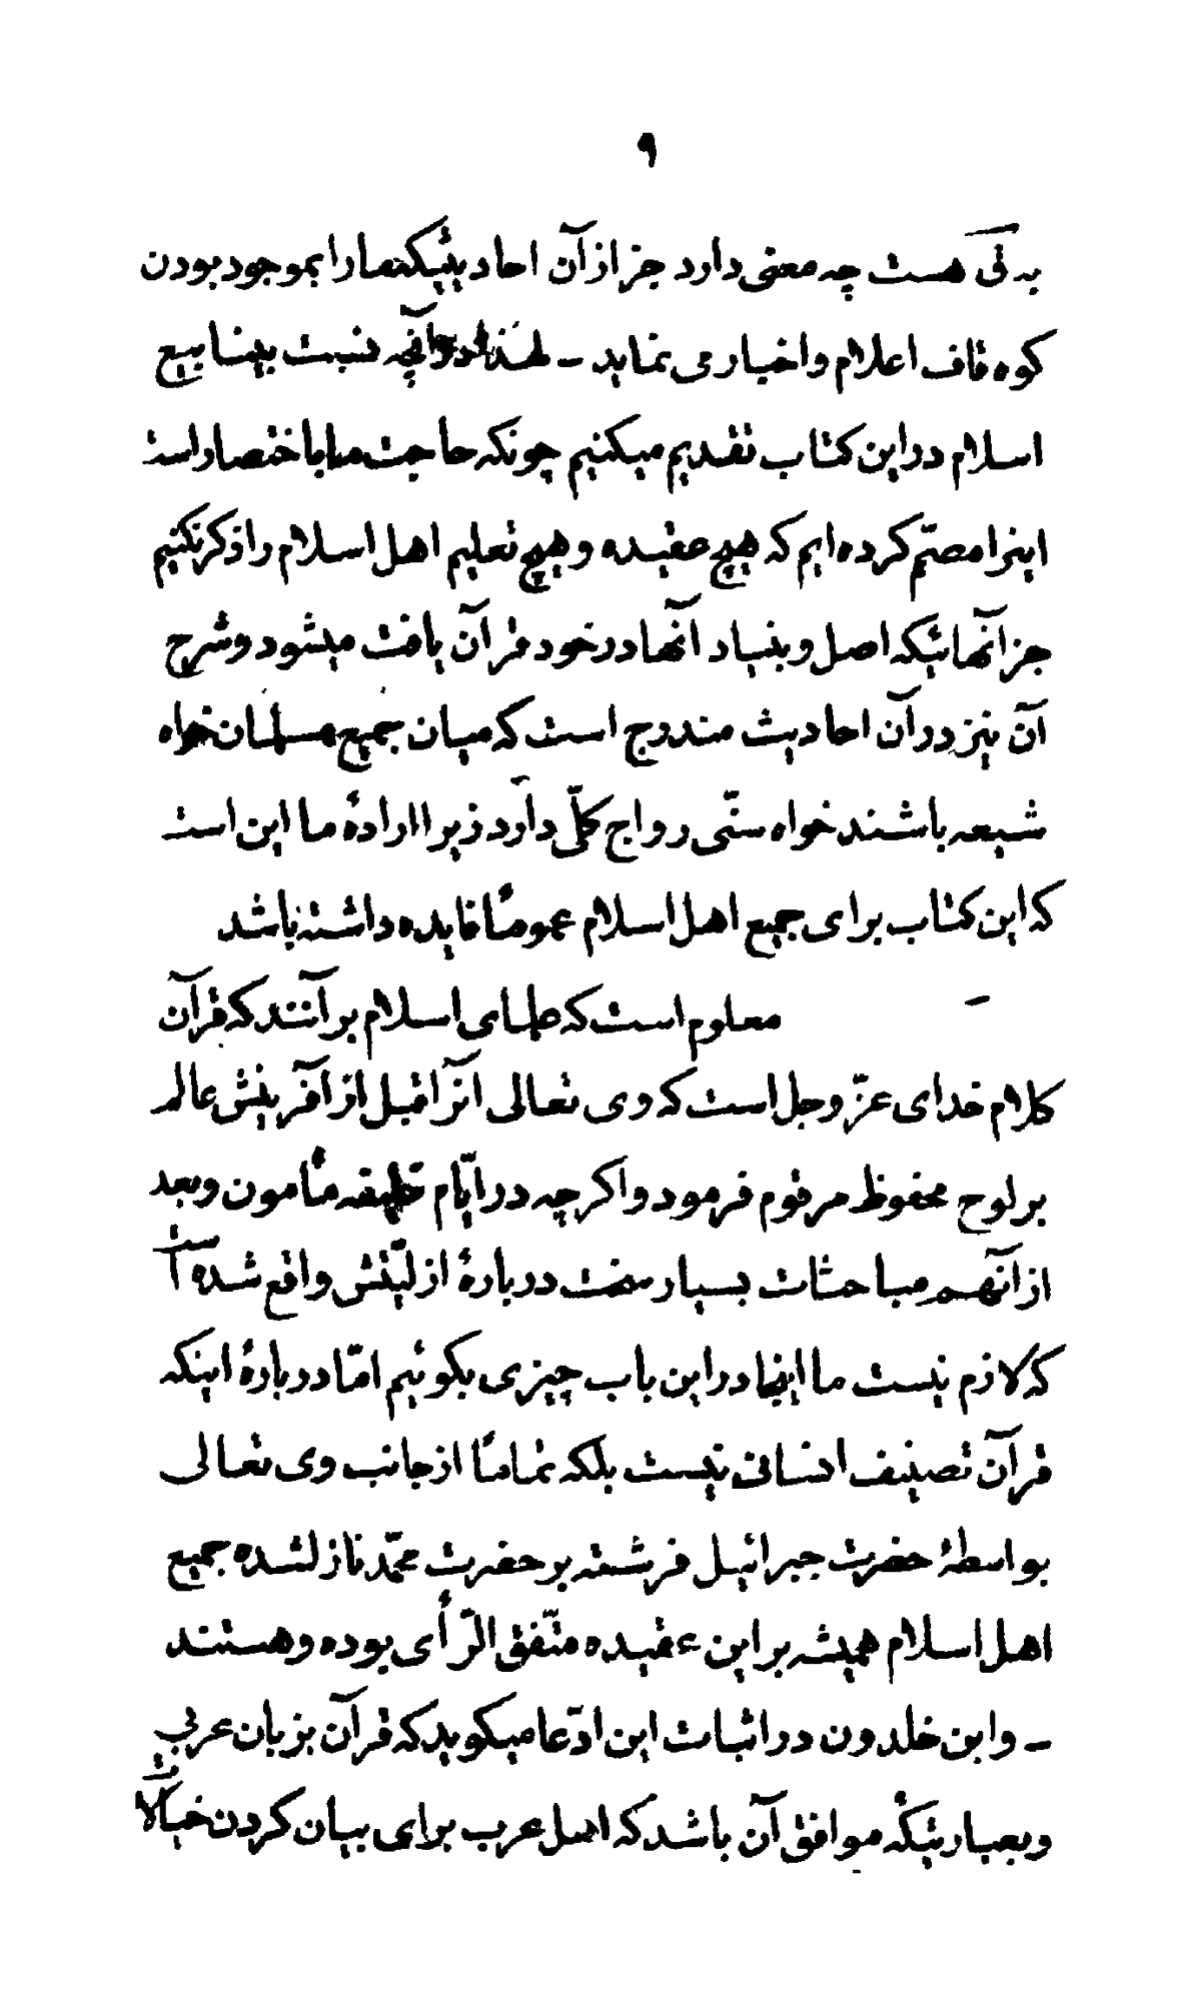 ۹
به قی هست چه معنی دارد جز از آن احادیثیکه ما را بموجود بودن
کوه قاف اعلام و اخبار می نماید - لهذا در آنچه نسبت بینابیع
اسلام در این کتاب تقدیم میکنیم چونکه حاجت ما باختصار است
اینرا مصمّم کرده ایم که هیچ عقیده و هیچ تعلیم اهل اسلام را ذکر نکنیم
جز آنهائیکه اصل و بنیاد آنها در خود قرآن یافت میشود و شرح
آن نیز در آن احادیث مندرج است که میان جمیع مسلمانان خواه
شیعه باشند خواه سنّی رواج کلّی دارد زیرا ارادهٔ ما این است
که این کتاب برای جمیع اهل اسلام عموماً فایده داشته باشد
- معلوم است که علمای اسلام بر آنند که قرآن
کلام خدای عزّ و جل است که وی تعالی آنرا قبل از آفرینش عالم
بر لوح محفوظ مرقوم فرمود و اکر چه در ایّام خلیفه مأمون و بعد
از آنهم مباحثات بسیار سخت در بارهٔ ازلیّتش واقع شده است
که لازم نیست ما اینجا در این باب چیزی بکوئیم امّا در بارهٔ اینکه
قرآن تصنیف انسانی نیست بلکه تماماً از جانب وی تعالی
بواسطهٔ حضرت جبرائیل فرشته بر حضرت محمّد نازل شده جمیع
اهل اسلام همیشه بر این عقیده متّفق الرّأی بوده و هستند
- و ابن خلدون در اثبات این ادّعا میکوید که قرآن بزبان عربی
و بعبارتیکه موافق آن باشد که اهل عرب برای بیان کردن خیالات